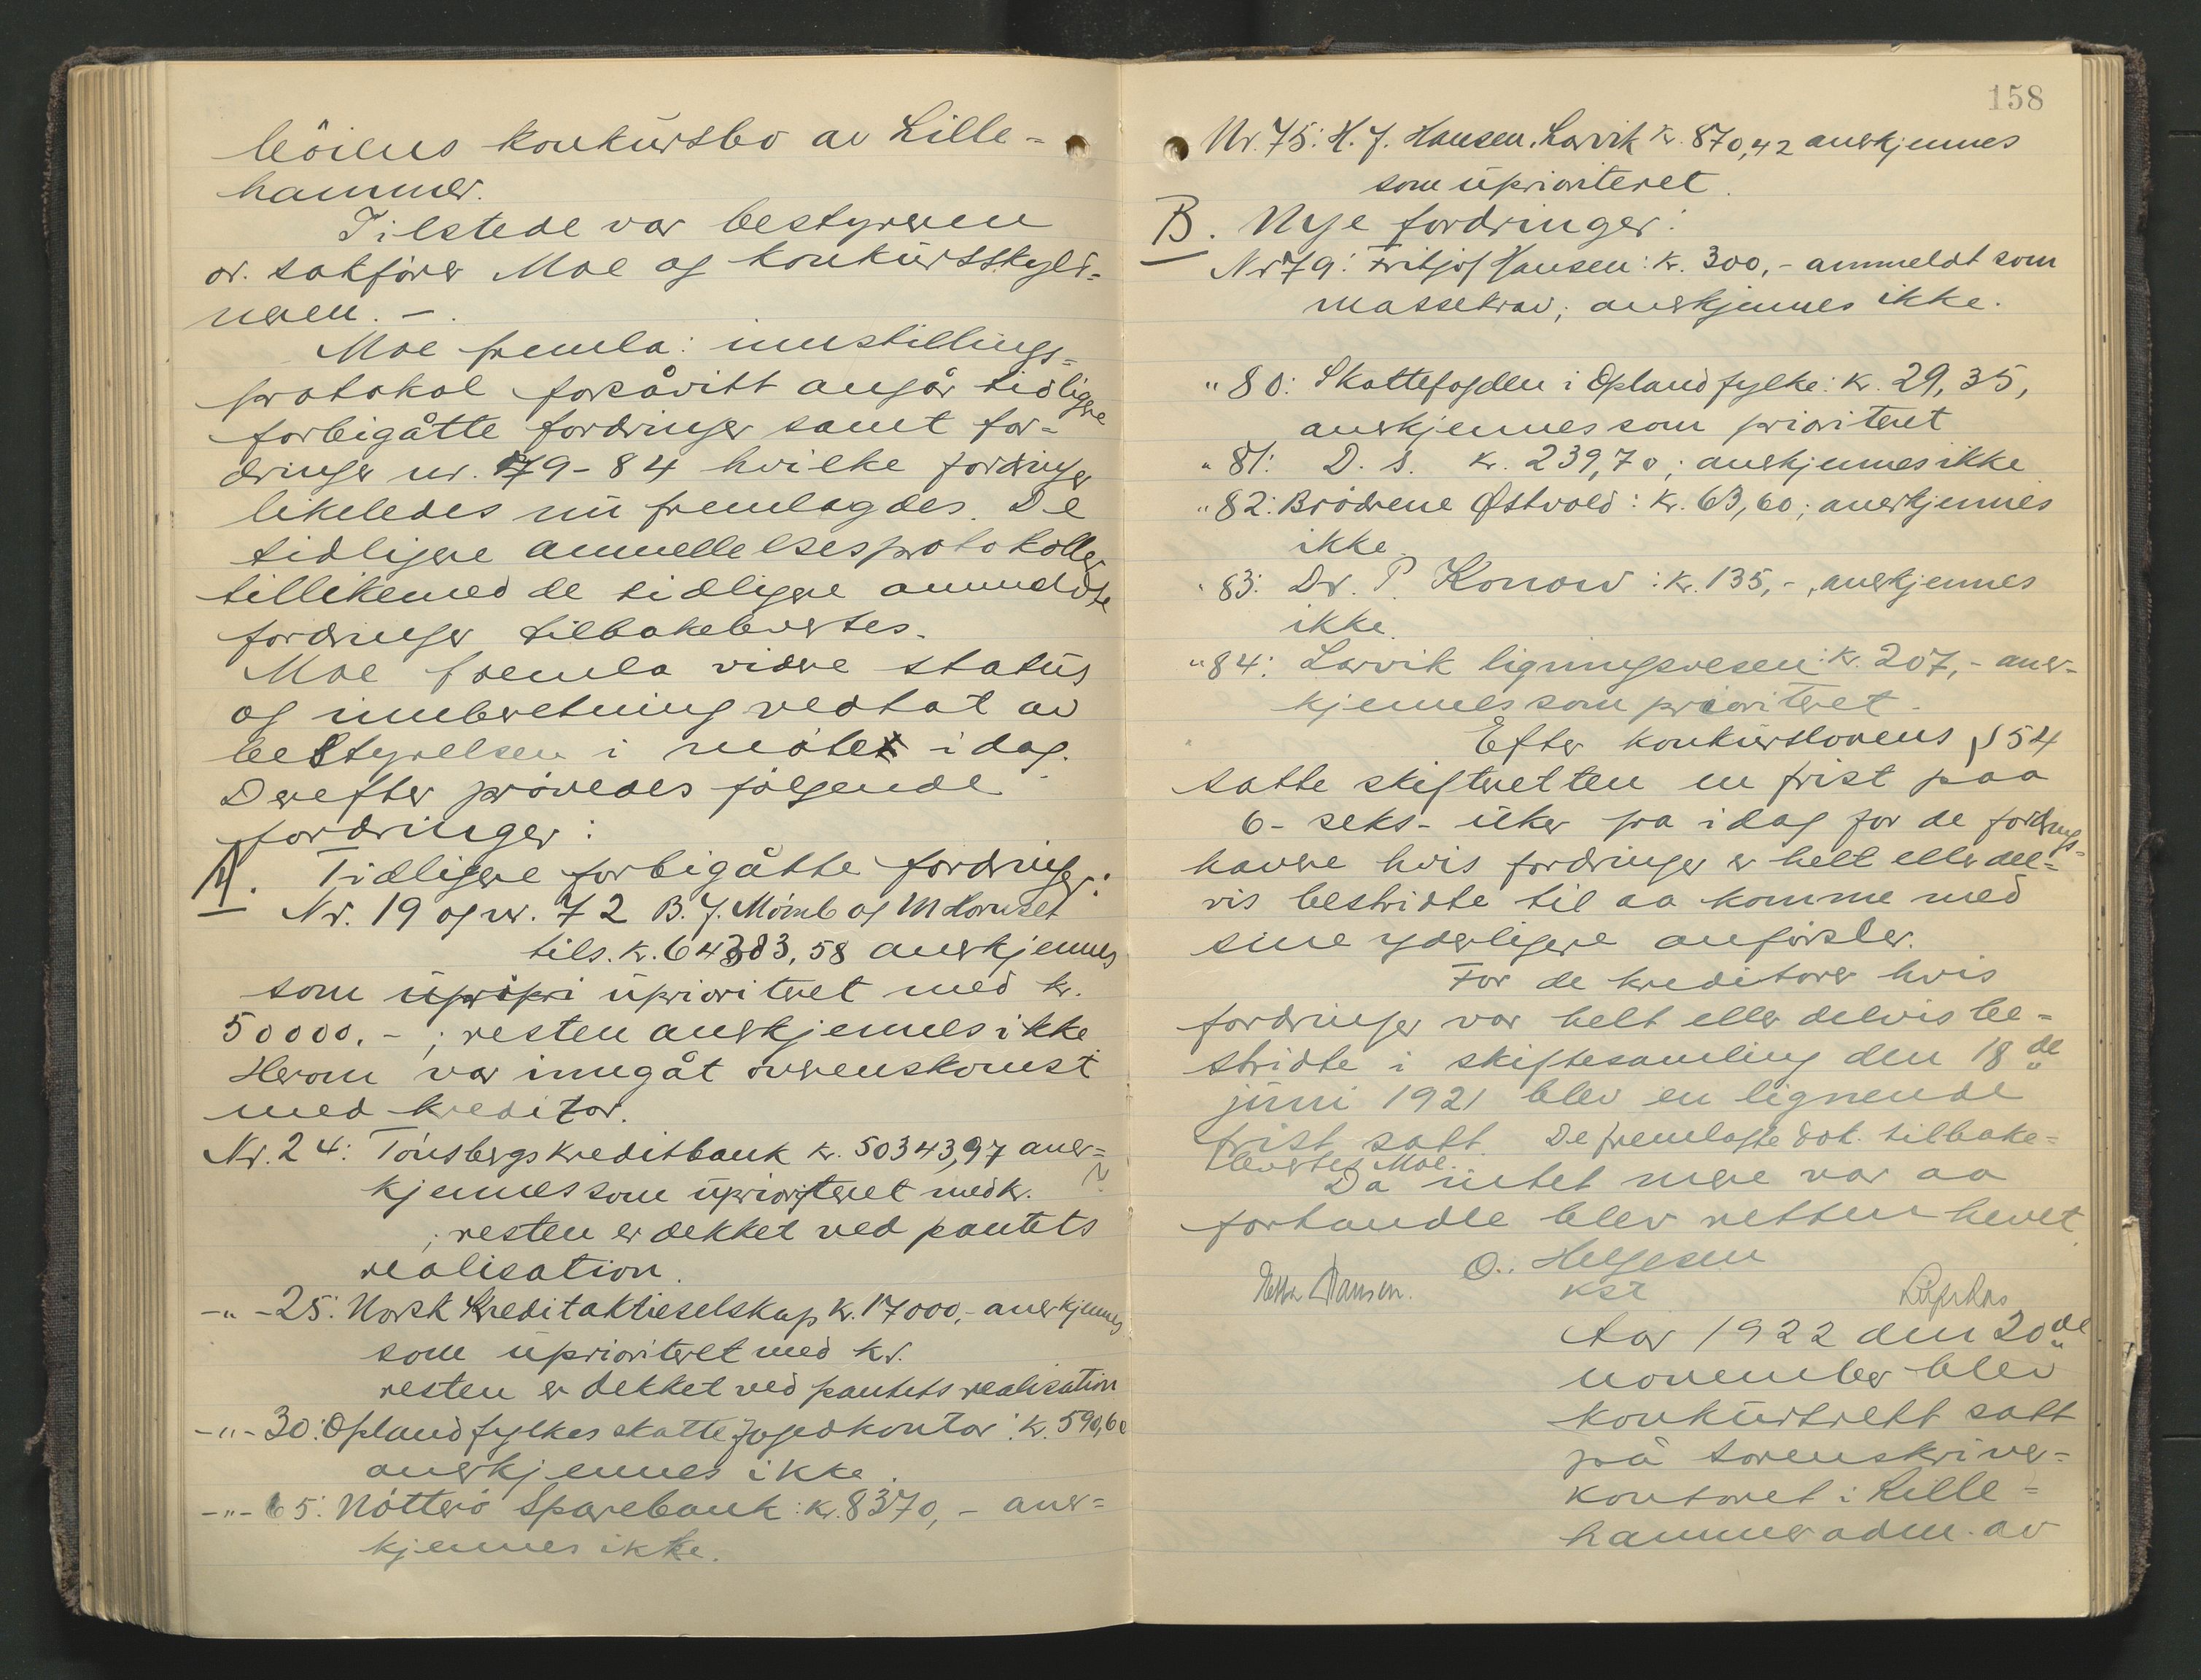 böiens konkursbo av Lille-
hammer.
Tilstede var bestyreren
or. sakförer Moe og konkursskyld-
neren. -
Moe fremla: innstillings-
protokol forsåvitt angår tidligere
forbigåtte fordringer samt for-
dringer nr. 79-84 hvilke fordringer
likeledes nu fremlagdes. De
tidligere anmeldelsesprotokoller
tillikemed de tidligere anmeldte
fordringer tilbakelevertes.
Moe fremla videre status
og innberetning vedtat av
bestyrelsen i möte i dag.
Derefter prövedes fölgende
fordringer:
A. Tidligere forbigåtte fordringer:
Nr. 19 og nr. 72 B. J. Mömb og M Hornset
tils. kr. 64383,58 anerkjennes
som upripri uprioriteret med kr.
50000.- ; resten anerkjennes ikke
Herom var inngåt overenskomst
med kreditor.
Nr. 24: Tönsbergs kreditbank kr. 50343,97 aner-
kjennes som uprioriteret med kr.
; resten er dekket ved pantets
realisation.
-"- 25: Norsk Kreditaktieselskap kr. 17000,- anerkjennes
som uprioriteret med kr.
resten er dekket ved pantets realisation
-"- 30: Opland fylkes skattefogedkontor: kr. 590,60
anerkjennes ikke.
-"- 65: Nötterö Sparebank: kr. 8370,- aner-
kjennes ikke.
158
Nr. 75: H. J. Hansen, Larvik kr. 870,42 anerkjennes
som uprioriteret.
B. Nye fordringer:
Nr 79: Fritjof Hansen: kr. 300,- anmeldt som
massekrav; anerkjennes ikke.
" 80: Skattefogden i Opland fylke: kr. 29,35,
anerkjennes som prioriteret
" 81: D. s. kr. 239,70; anerkjennes ikke
" 82: Brödrene Østvold: kr. 63,60; anerkjennes
ikke.
" 83: Dr. P. Konow: kr. 135,-, anerkjennes
ikke.
" 84: Larvik ligningsvesen: kr. 207,- aner-
kjennes som prioriteret.
Efter konkurslovens § 54
satte skifteretten en frist paa
6- seks- uker fra idag for de fordrings-
havere hvis fordringer er helt eller del-
vis bestridte til aa komme med
sine yderligere anförsler.
For de kreditorer hvis
fordringer var helt eller delvis be-
stridte i skiftesamling den 18de
juni 1921 blev en lignende
frist satt. De fremlagte dok. tilbake-
levertes Moe.
Da intet mere var aa
forhandle blev retten hevet.
O. Helgesen
kst
Hansen.
Aar 1922 den 20de
november blev
konkursrett satt
på sorenskriver-
kontoret i Lille-
hammer adm. av